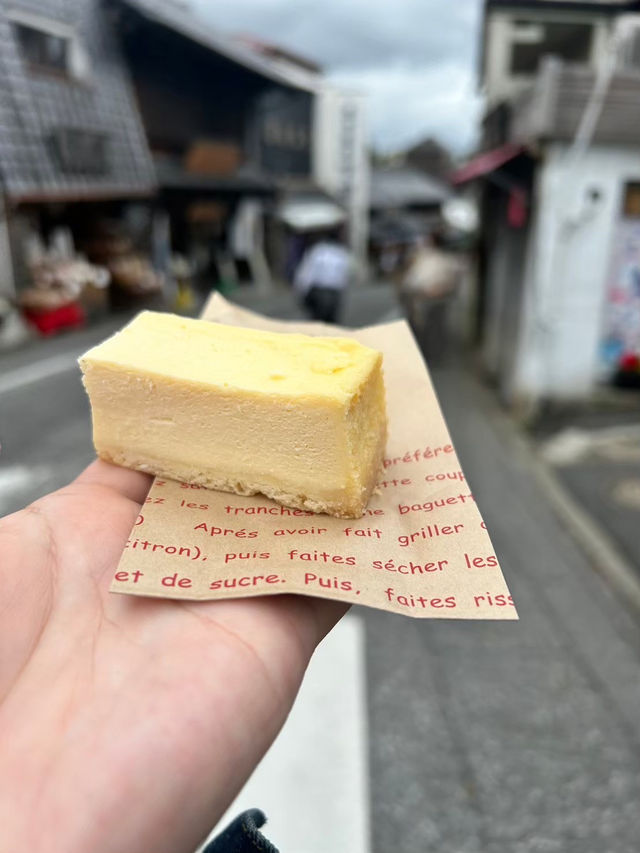 préfére
tte coup
ez les tranche ne baguett
Aprés avoir fait griller
citron), puis faites sécher les
et de sucre. Puis, faites riss